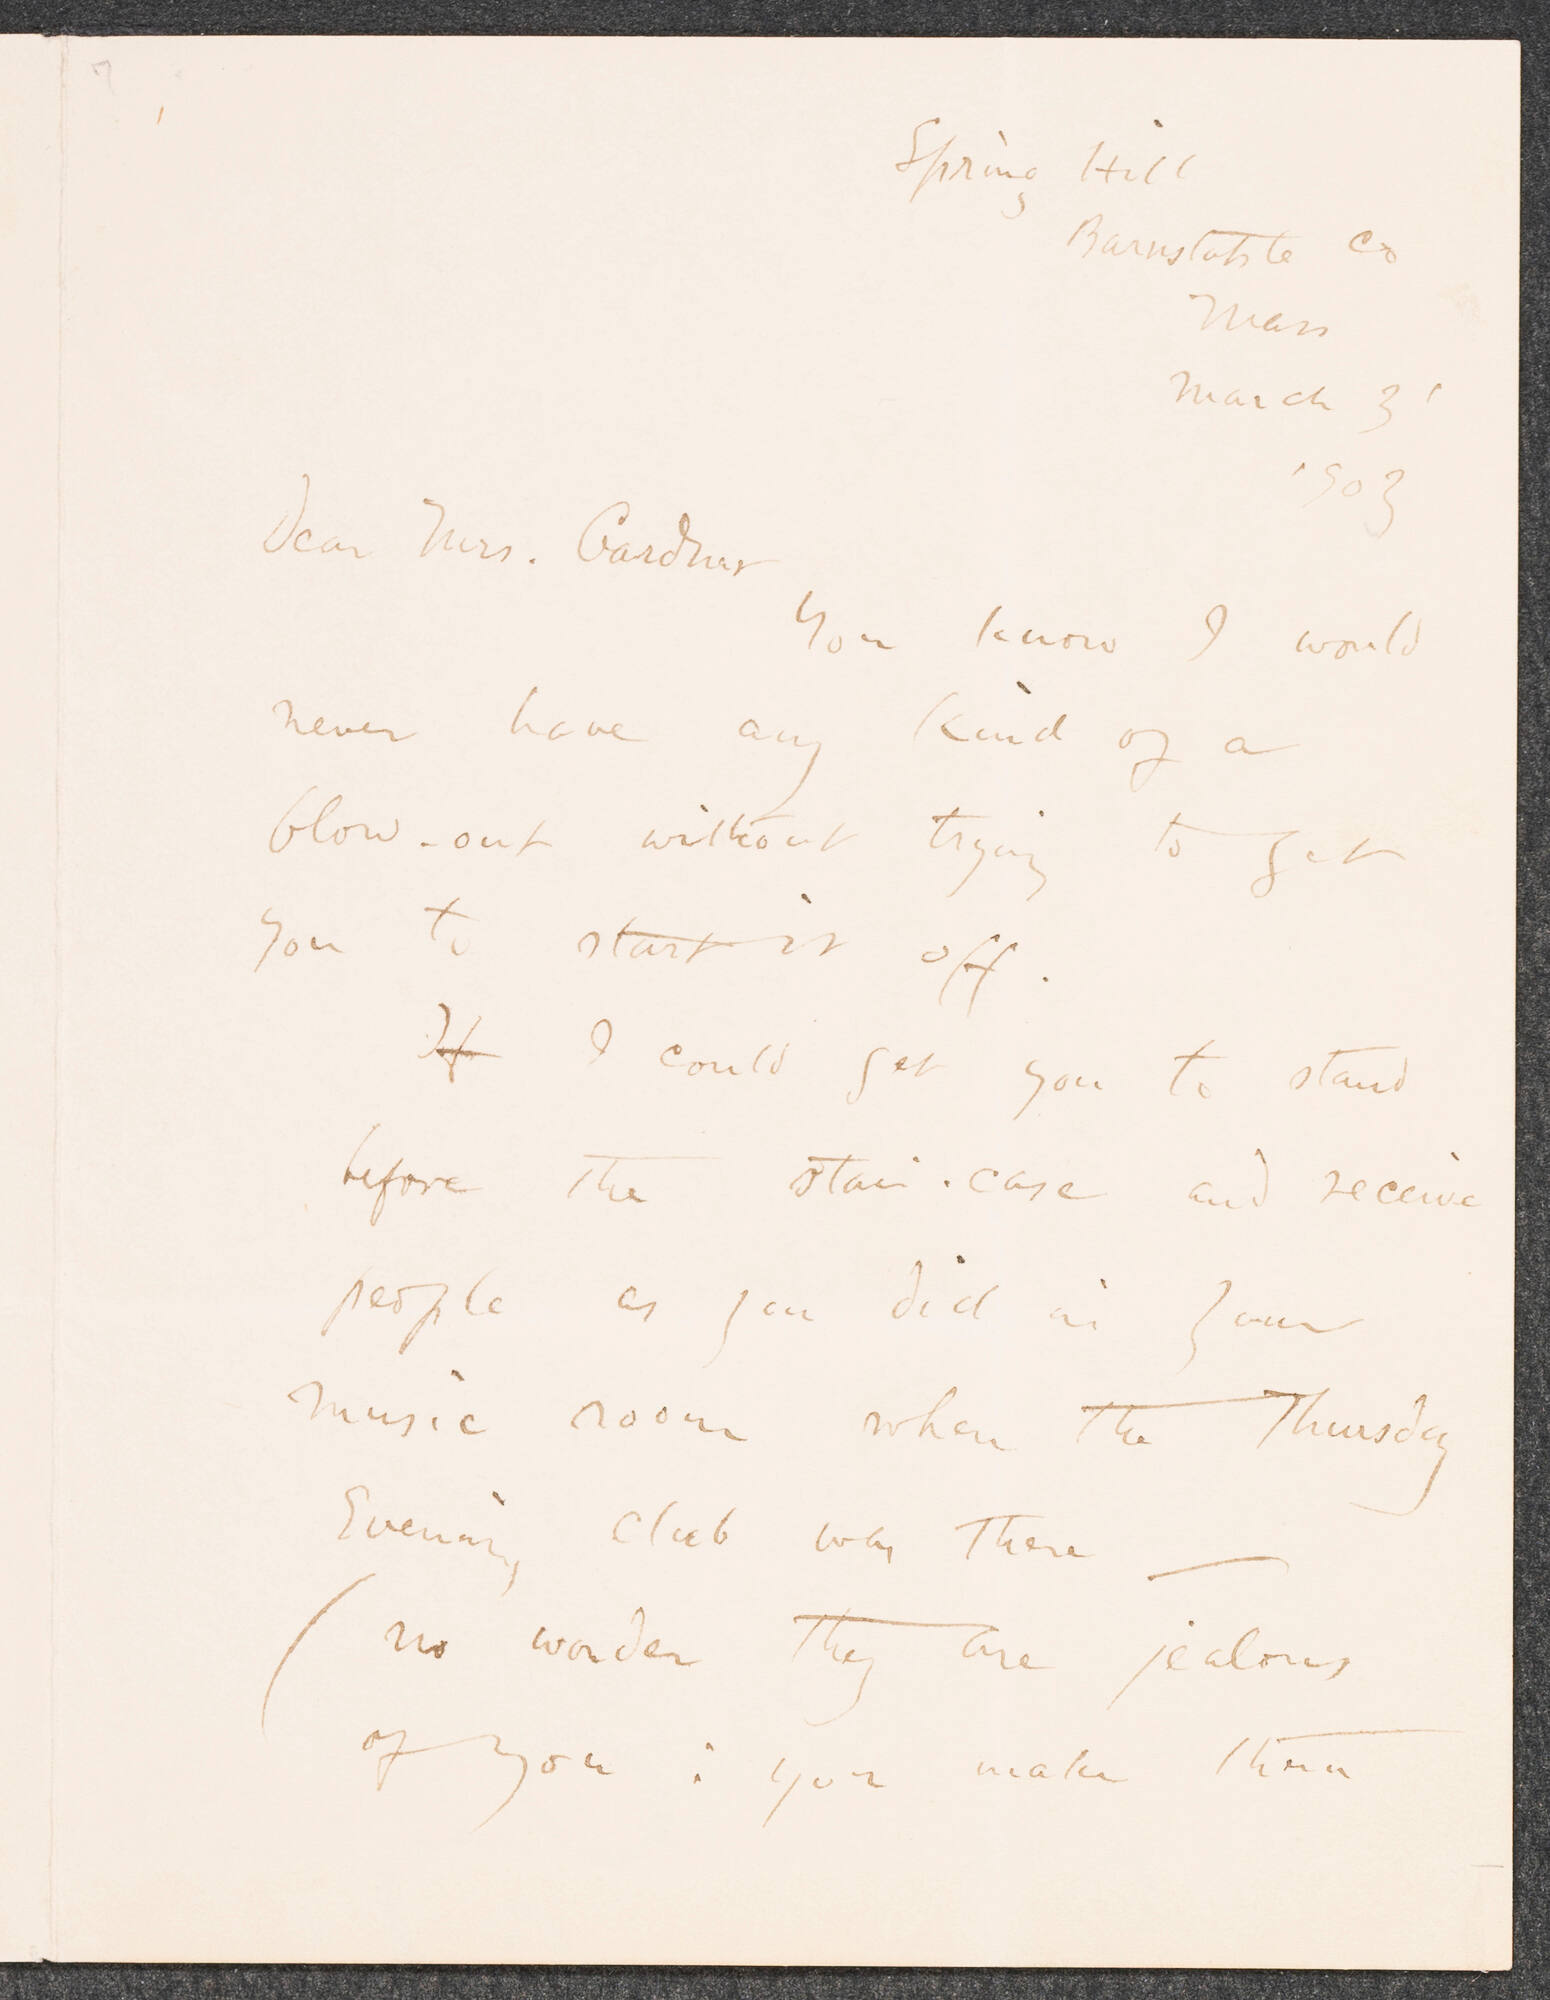 Spring Hill
Barnstable Co
Mass
March 31
1903
Dear Mrs. Gardner
You know I would
never have any kind of a
blow-out without trying to get
you to start it off.
If I could get you to stand
before the stair-case and receive
people as you did in your
music room when the Thursday
Evening club was there —
(no wonder they are jealous
of you: you make them